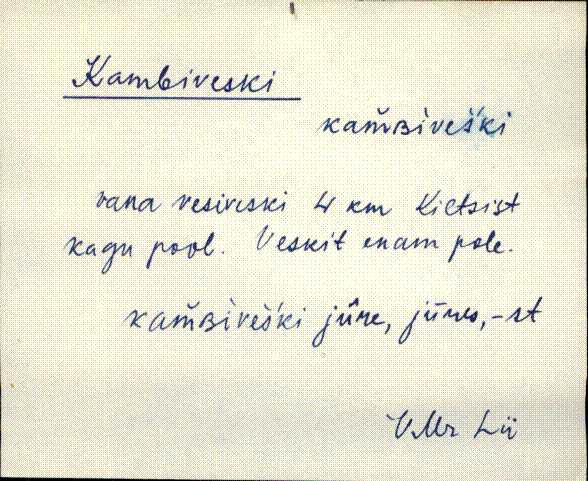 Kambiveski
kam̆ʙìveški
vana vesiveski 4 km Kietsist
kagu pool. Veskit enam pole.
kam̆ʙìveški jūre, jūres, -st
VMr Lii